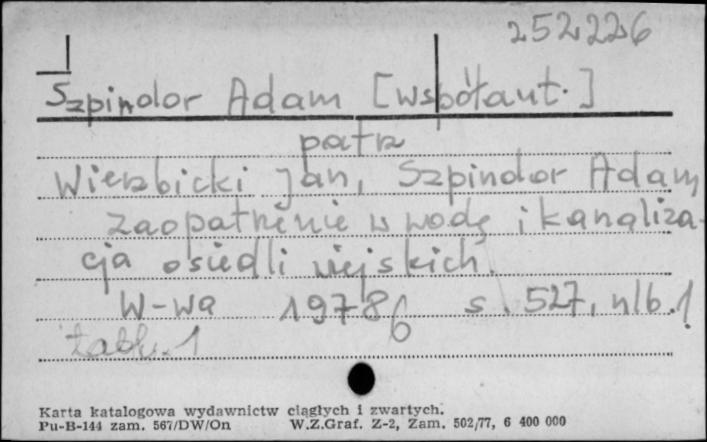 252226
Szpindor Adam [współaut.]
patrz
Wierzbicki Jan, Szpindor Adam
Zaopatrzenie w wodę i kanaliza-
cja osiedli wiejskich.
W-wa 1978 s. 527, nlb. 1
tabl. 1
Karta katalogowa wydawnictw ciągłych i zwartych.
Pu-B-144 zam. 567/DW/On W.Z.Graf. Z-2, Zam. 502/77, 6 400 000